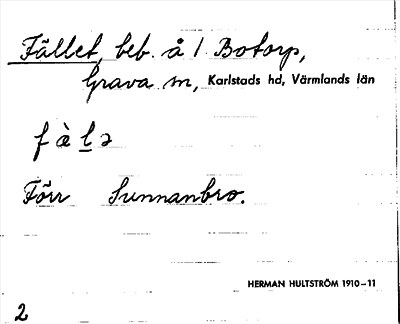 Fället, beb. å 1 Botorp,
Grava sn, Karlstads hd, Värmlands län
f æ̀ l ə
Förr Sunnanbro.
HERMAN HULTSTRÖM 1910–11
2